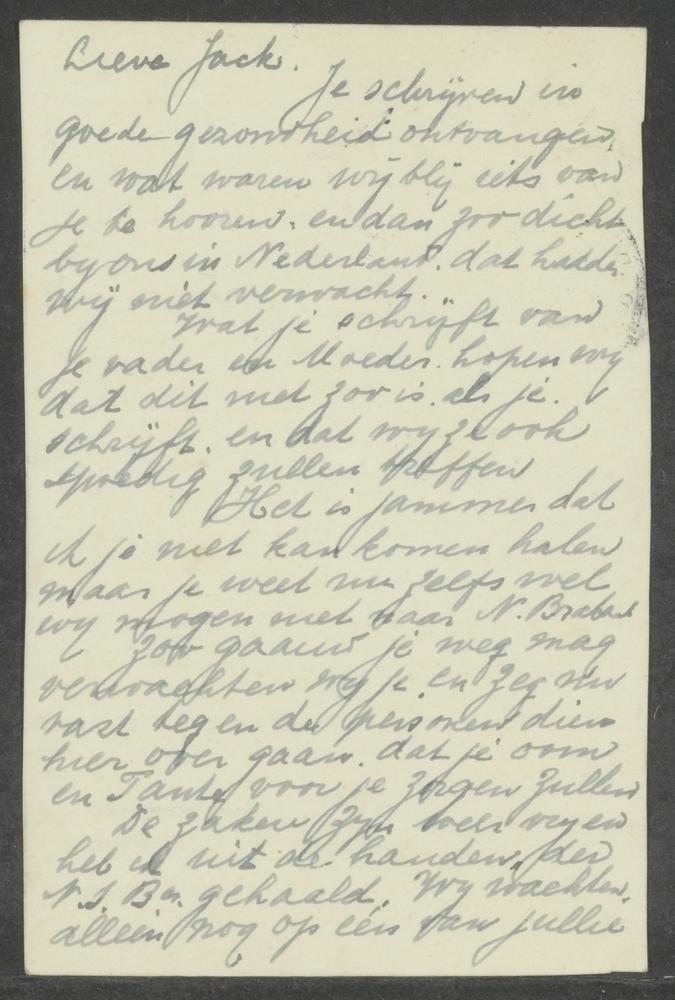 Lieve Jack.
Je schrijven in
goede gezondheid ontvangen,
en wat waren wij blij iets van
je te hooren. en dan zoo dicht
by ons in Nederland. dat hadden
wij niet verwacht.
Wat je schrijft van
je vader en Moeder. hopen wy
dat dit niet zoo is. als je.
schrijft. en dat wy ze ook
spoedig zullen treffen
Het is jammer dat
ik je niet kan komen halen
maar je weet nu zelfs wel
wy mogen niet naar N. Brabant
Zoo gaauw je weg mag
verwachten wy je. en zeg nu
vast tegen de personen die
hier over gaan. dat je oom
en Tante voor je zorgen zullen
De zaken zyn weer vry en
heb ik uit de handen. der
N.S.Brs. gehaald. Wy wachten.
alleen nog op één van jullie